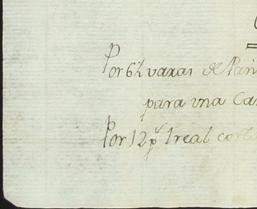 Por 6½ varas de Pañ
para vna Ca
Por 12 ps 1 real cor